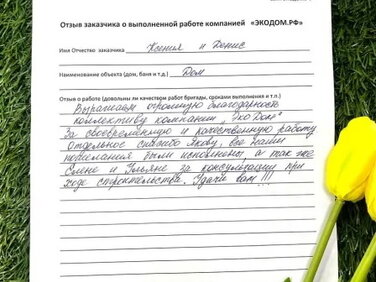 Отзыв заказчика о выполненной работе компанией «ЭКОДОМ.РФ»
Имя Отчество заказчика Ксения и Денис
Наименование объекта (дом, баня и т.д.) Дом
Отзыв о работе (довольны ли качеством работ бригады, сроками выполнения и т.п.)
Выражаем огромную благодарность
коллективу компании "Эко Дом"
За своевременную и качественную работу
Отдельное спасибо Якову, все наши
пожелания были исполнены, а так же
Елене и Ульяне за консультации при
ходе строительства. Удачи вам!!!